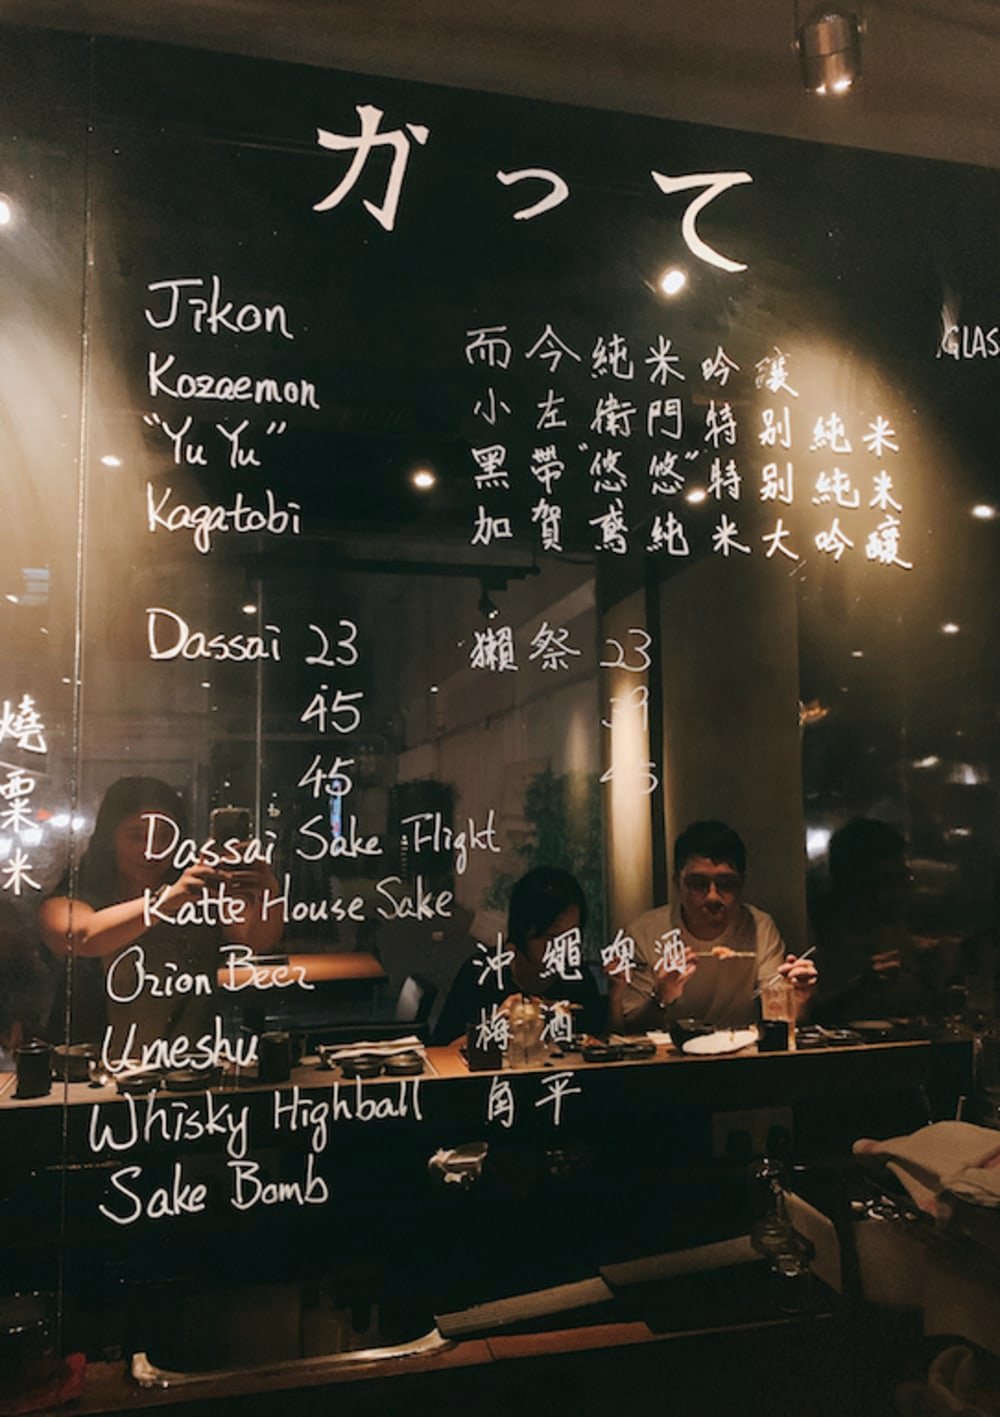 かって
Jikon 而今純米吟釀
Kozaemon 小左衛門特別純米
"Yu Yu" 黑帶"悠悠"特別純米
Kagatobi 加賀鳶純米大吟釀
Dassai 23 獺祭 23
45 39
45 45
Dassai Sake Flight
Katte House Sake
Orion Beer 沖繩啤酒
Umeshu 梅酒
Whisky Highball 角平
Sake Bomb
燒粟米
GLAS